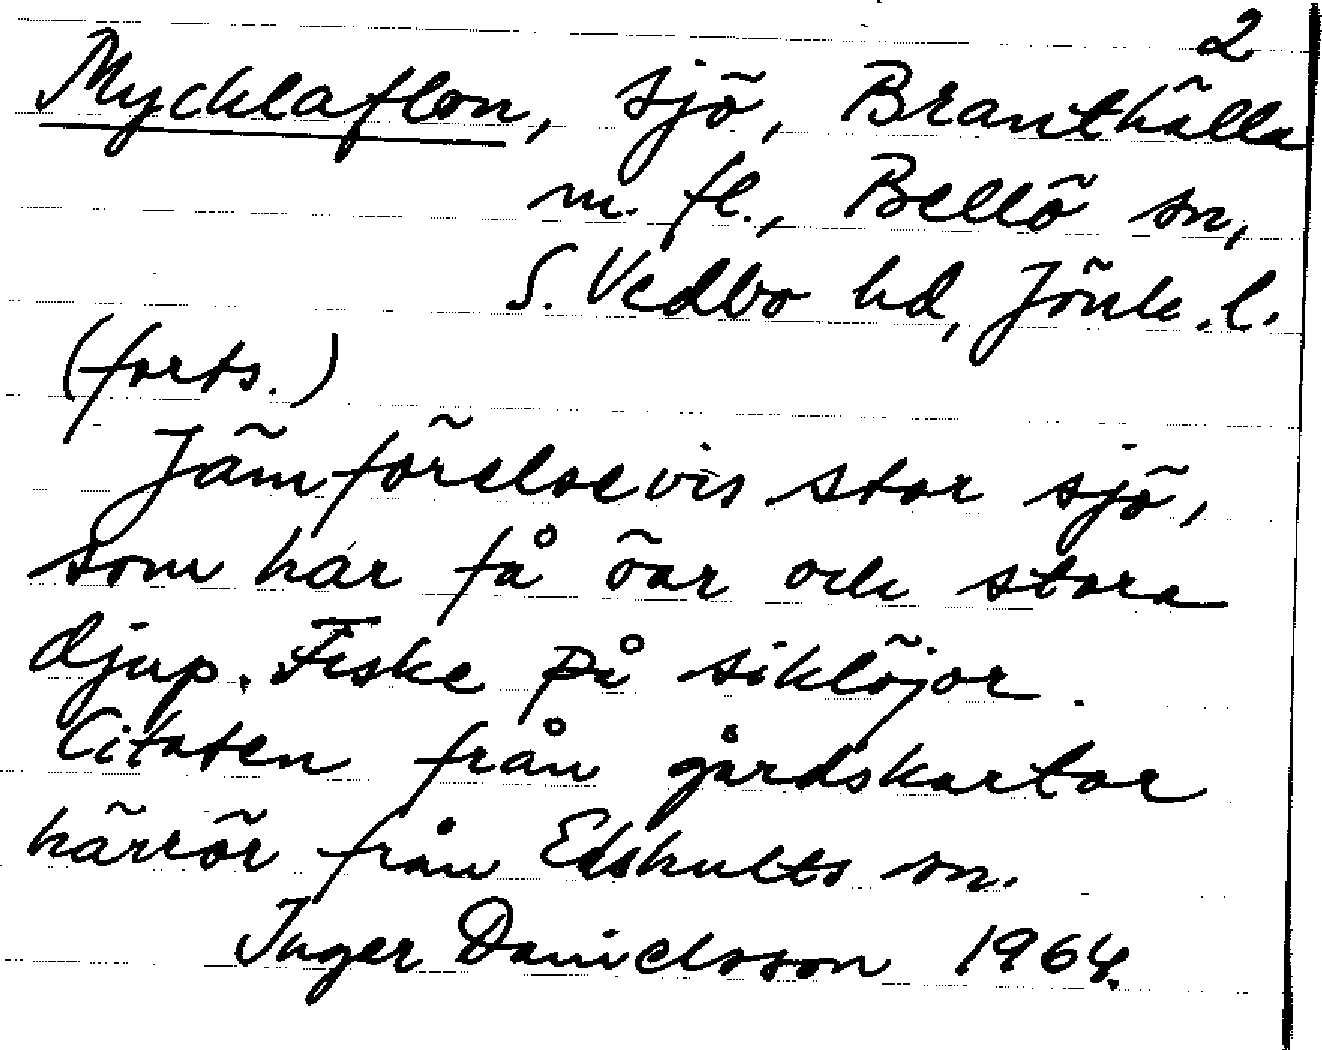 2
Mycklaflon, sjö, Branthälla
m. fl., Bellö sn,
S. Vedbo hd, Jönk.l.
(forts.)
Jämförelsevis stor sjö,
som har få öar och stora
djup. Fiske på siklöjor.
Citaten från gårdskartor
härrör från Edshults sn.
Inger Danielsson 1964.